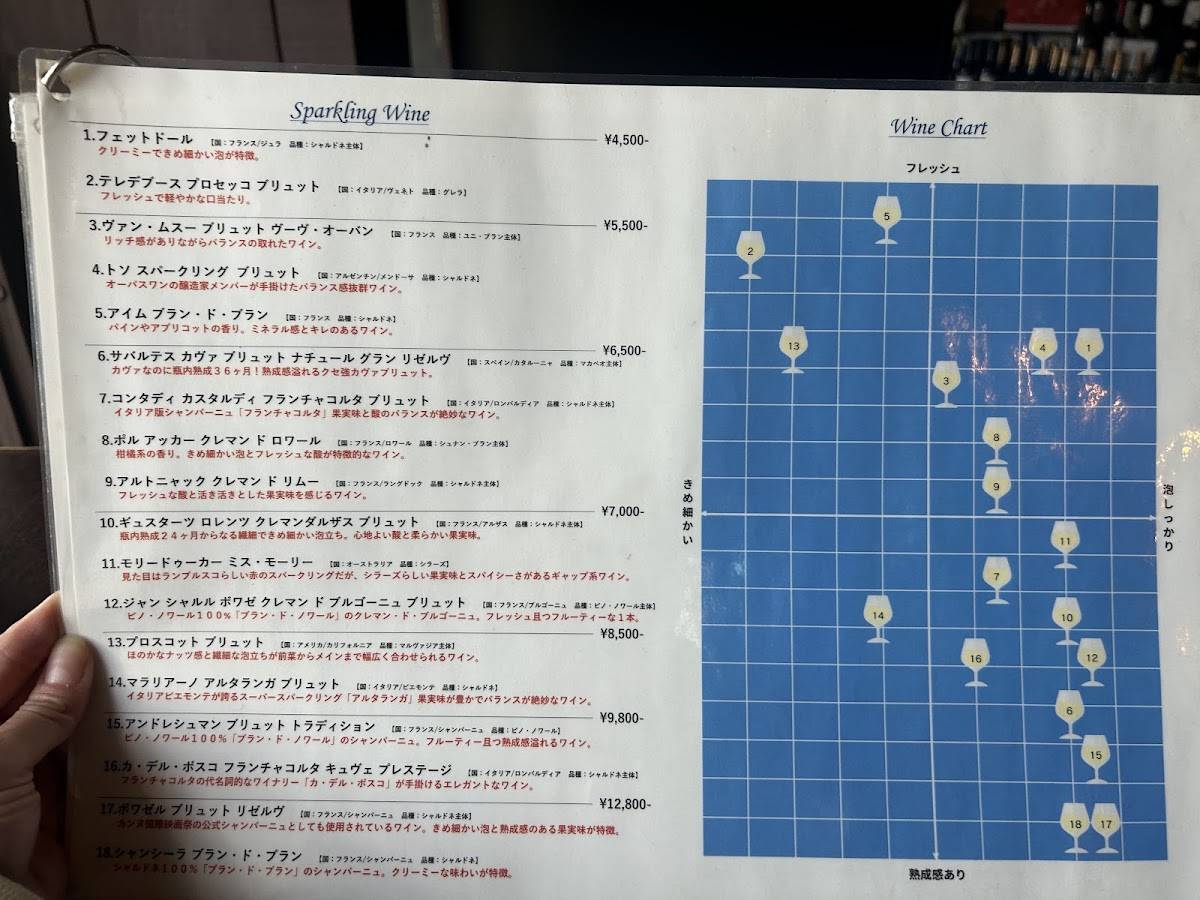 Sparkling Wine
¥4,500-
1.フェットドール 【国：フランス/ジュラ 品種：シャルドネ主体】
クリーミーできめ細かい泡が特徴。
2.テレデブース プロセッコ ブリュット 【国：イタリア/ヴェネト 品種：グレラ】
フレッシュで軽やかな口当たり。
¥5,500-
3.ヴァン・ムスー ブリュット ヴーヴ・オーバン 【国：フランス 品種：ユニ・ブラン主体】
リッチ感がありながらバランスの取れたワイン。
4.トソ スパークリング ブリュット 【国：アルゼンチン/メンドーサ 品種：シャルドネ】
オーパスワンの醸造家メンバーが手掛けたバランス感抜群ワイン。
5.アイム ブラン・ド・ブラン 【国：フランス 品種：シャルドネ】
パインやアプリコットの香り。ミネラル感とキレのあるワイン。
¥6,500-
6.サバルテス カヴァ ブリュット ナチュール グラン リゼルヴ 【国：スペイン/カタルーニャ 品種：マカベオ主体】
カヴァなのに瓶内熟成３６ヶ月！熟成感溢れるクセ強カヴァブリュット。
7.コンタディ カスタルディ フランチャコルタ ブリュット 【国：イタリア/ロンバルディア 品種：シャルドネ主体】
イタリア版シャンパーニュ「フランチャコルタ」果実味と酸のバランスが絶妙なワイン。
8.ポル アッカー クレマン ド ロワール 【国：フランス/ロワール 品種：シュナン・ブラン主体】
柑橘系の香り。きめ細かい泡とフレッシュな酸が特徴的なワイン。
9.アルトニャック クレマン ド リムー 【国：フランス/ラングドック 品種：シャルドネ主体】
フレッシュな酸と活き活きとした果実味を感じるワイン。
¥7,000-
10.ギュスターツ ロレンツ クレマンダルザス ブリュット 【国：フランス/アルザス 品種：シャルドネ主体】
瓶内熟成２４ヶ月からなる繊細できめ細かい泡立ち。心地よい酸と柔らかい果実味。
11.モリードゥーカー ミス・モーリー 【国：オーストラリア 品種：シラーズ】
見た目はランブルスコらしい赤のスパークリングだが、シラーズらしい果実味とスパイシーさがあるギャップ系ワイン。
12.ジャン シャルル ボワゼ クレマン ド ブルゴーニュ ブリュット 【国：フランス/ブルゴーニュ 品種：ピノ・ノワール主体】
ピノ・ノワール100％「ブラン・ド・ノワール」のクレマン・ド・ブルゴーニュ。フレッシュ且つフルーティーな１本。
¥8,500-
13.プロスコット ブリュット 【国：アメリカ/カリフォルニア 品種：マルヴァジア主体】
ほのかなナッツ感と繊細な泡立ちが前菜からメインまで幅広く合わせられるワイン。
14.マラリアーノ アルタランガ ブリュット 【国：イタリア/ピエモンテ 品種：シャルドネ】
イタリアピエモンテが誇るスーパースパークリング「アルタランガ」果実味が豊かでバランスが絶妙なワイン。
¥9,800-
15.アンドレシュマン ブリュット トラディション 【国：フランス/シャンパーニュ 品種：ピノ・ノワール】
ピノ・ノワール100％「ブラン・ド・ノワール」のシャンパーニュ。フルーティー且つ熟成感溢れるワイン。
16.カ・デル・ボスコ フランチャコルタ キュヴェ プレステージ 【国：イタリア/ロンバルディア 品種：シャルドネ主体】
フランチャコルタの代名詞的なワイナリー「カ・デル・ボスコ」が手掛けるエレガントなワイン。
¥12,800-
17.ボワゼル ブリュット リゼルヴ 【国：フランス/シャンパーニュ 品種：シャルドネ主体】
カンヌ国際映画祭の公式シャンパーニュとしても使用されているワイン。きめ細かい泡と熟成感のある果実味が特徴。
18.シャンシーラ ブラン・ド・ブラン 【国：フランス/シャンパーニュ 品種：シャルドネ】
シャルドネ100％「ブラン・ド・ブラン」のシャンパーニュ。クリーミーな味わいが特徴。
Wine Chart
フレッシュ
5
2
13
4
1
3
8
9
きめ細かい
泡しっかり
11
7
14
10
16
12
6
15
18
17
熟成感あり